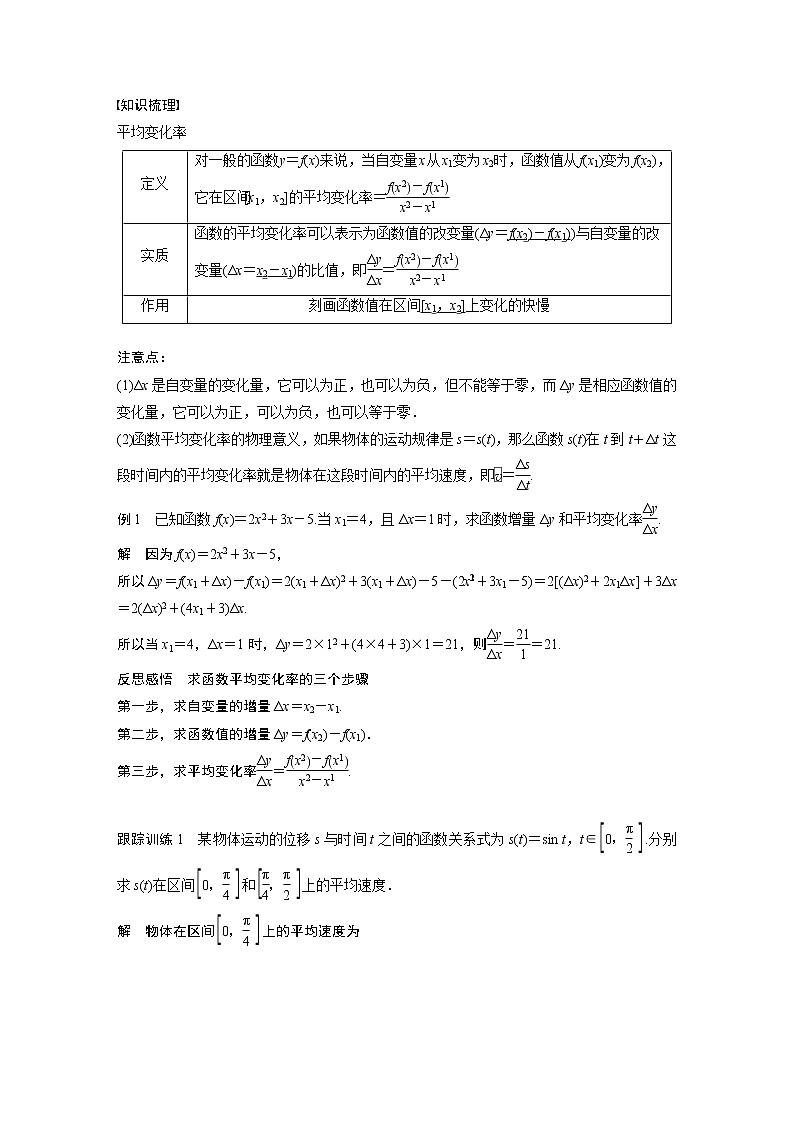 【知识梳理】
平均变化率
定义
对一般的函数y=f(x)来说，当自变量x从x₁变为x₂时，函数值从f(x₁)变为f(x₂)，
它在区间[x₁，x₂]的平均变化率=f(x2)-f(x1)/x2-x1
实质
函数的平均变化率可以表示为函数值的改变量(Δy=f(x₂)-f(x₁))与自变量的改
变量(Δx=x₂-x₁)的比值，即Δy/Δx=f(x2)-f(x1)/x2-x1
作用
刻画函数值在区间[x₁，x₂]上变化的快慢
注意点：
(1)Δx是自变量的变化量，它可以为正，也可以为负，但不能等于零，而Δy是相应函数值的
变化量，它可以为正，可以为负，也可以等于零．
(2)函数平均变化率的物理意义，如果物体的运动规律是s=s(t)，那么函数s(t)在t到t+Δt这
段时间内的平均变化率就是物体在这段时间内的平均速度，即=Δs/Δt.
例1　已知函数f(x)=2x²+3x-5.当x₁=4，且Δx=1时，求函数增量Δy和平均变化率Δy/Δx.
解　因为f(x)=2x²+3x-5，
所以Δy=f(x₁+Δx)-f(x₁)=2(x₁+Δx)²+3(x₁+Δx)-5-(2x₁²+3x₁-5)=2[(Δx)²+2x₁Δx]+3Δx
=2(Δx)²+(4x₁+3)Δx.
所以当x₁=4，Δx=1时，Δy=2×1²+(4×4+3)×1=21，则Δy/Δx=21/1=21.
反思感悟　求函数平均变化率的三个步骤
第一步，求自变量的增量Δx=x₂-x₁.
第二步，求函数值的增量Δy=f(x₂)-f(x₁)．
第三步，求平均变化率Δy/Δx=f(x2)-f(x1)/x2-x1.
跟踪训练1　某物体运动的位移s与时间t之间的函数关系式为s(t)=sin t，t∈[0，π/2].分别
求s(t)在区间[0，π/4]和[π/4，π/2]上的平均速度．
解　物体在区间[0，π/4]上的平均速度为